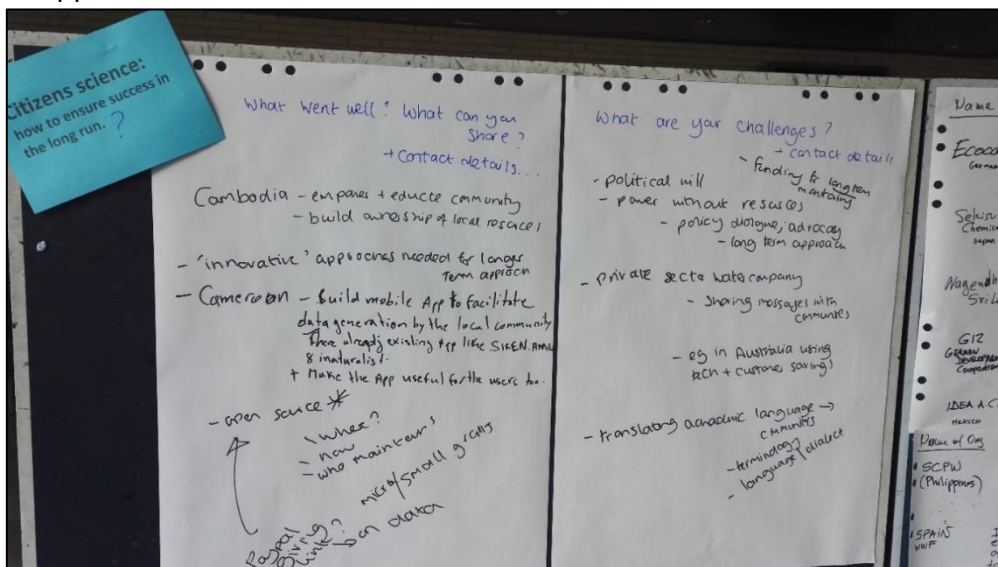 Citizens science:
how to ensure success in
the long run. ?
What went well? What can you
share?
+ contact details...
Cambodia - empower + educte community
- build ownership of local resouces
- 'innovative' approaches needed for longer
term approch
- Cameroon - Build mobile App to facilitate
data generation by the local community
There already existing App like SIREN.
& inaturalist.
+ Make the App useful for the users too.
- open science *
\ where?
- how
- who maintains
micro/small grants
Paypal
giving
link?
on data
What are your challenges?
+ contact details
- funding for long term
- political will
- power without resouces
- policy dialogue, advocacy
- long term approach
- private secto watercompany
- sharing messages with
communities
- eg in Australia using
tech + customer savings
- translating acnadmic language →
communities
- terminology
- language/dialect
Name
German
Selisu
Chemic
Japan
Nagendh
Sri L
GIZ
GERMAN
DEVELOPM
Cooperation
IDEA A.C.
Mexico
Name of Org
SCPW
(Philippines)
SPAINS
WWF